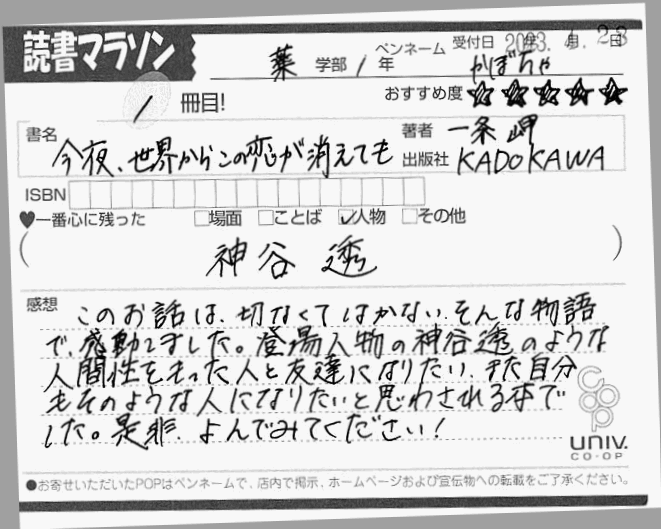 読書マラソン
薬 学部 1 年 ペンネーム かぼちゃ 受付日 2023年4月23日
1 冊目! おすすめ度 ★★★★★
書名 今夜、世界からこの恋が消えても 著者 一条岬
出版社 KADOKAWA
ISBN
♥一番心に残った □場面 □ことば ☑人物 □その他
( 神谷 透 )
感想 このお話は、切なくてはかない、そんな物語
で、感動しました。登場人物の神谷透のような
人間性をもった人と友達になりたい、また自分
もそのような人になりたいと思わされる本で
した。是非、よんでみてください!
coop
UNIV.
CO-OP
●お寄せいただいたPOPはペンネームで、店内で掲示、ホームページおよび宣伝物への転載をご了承ください。